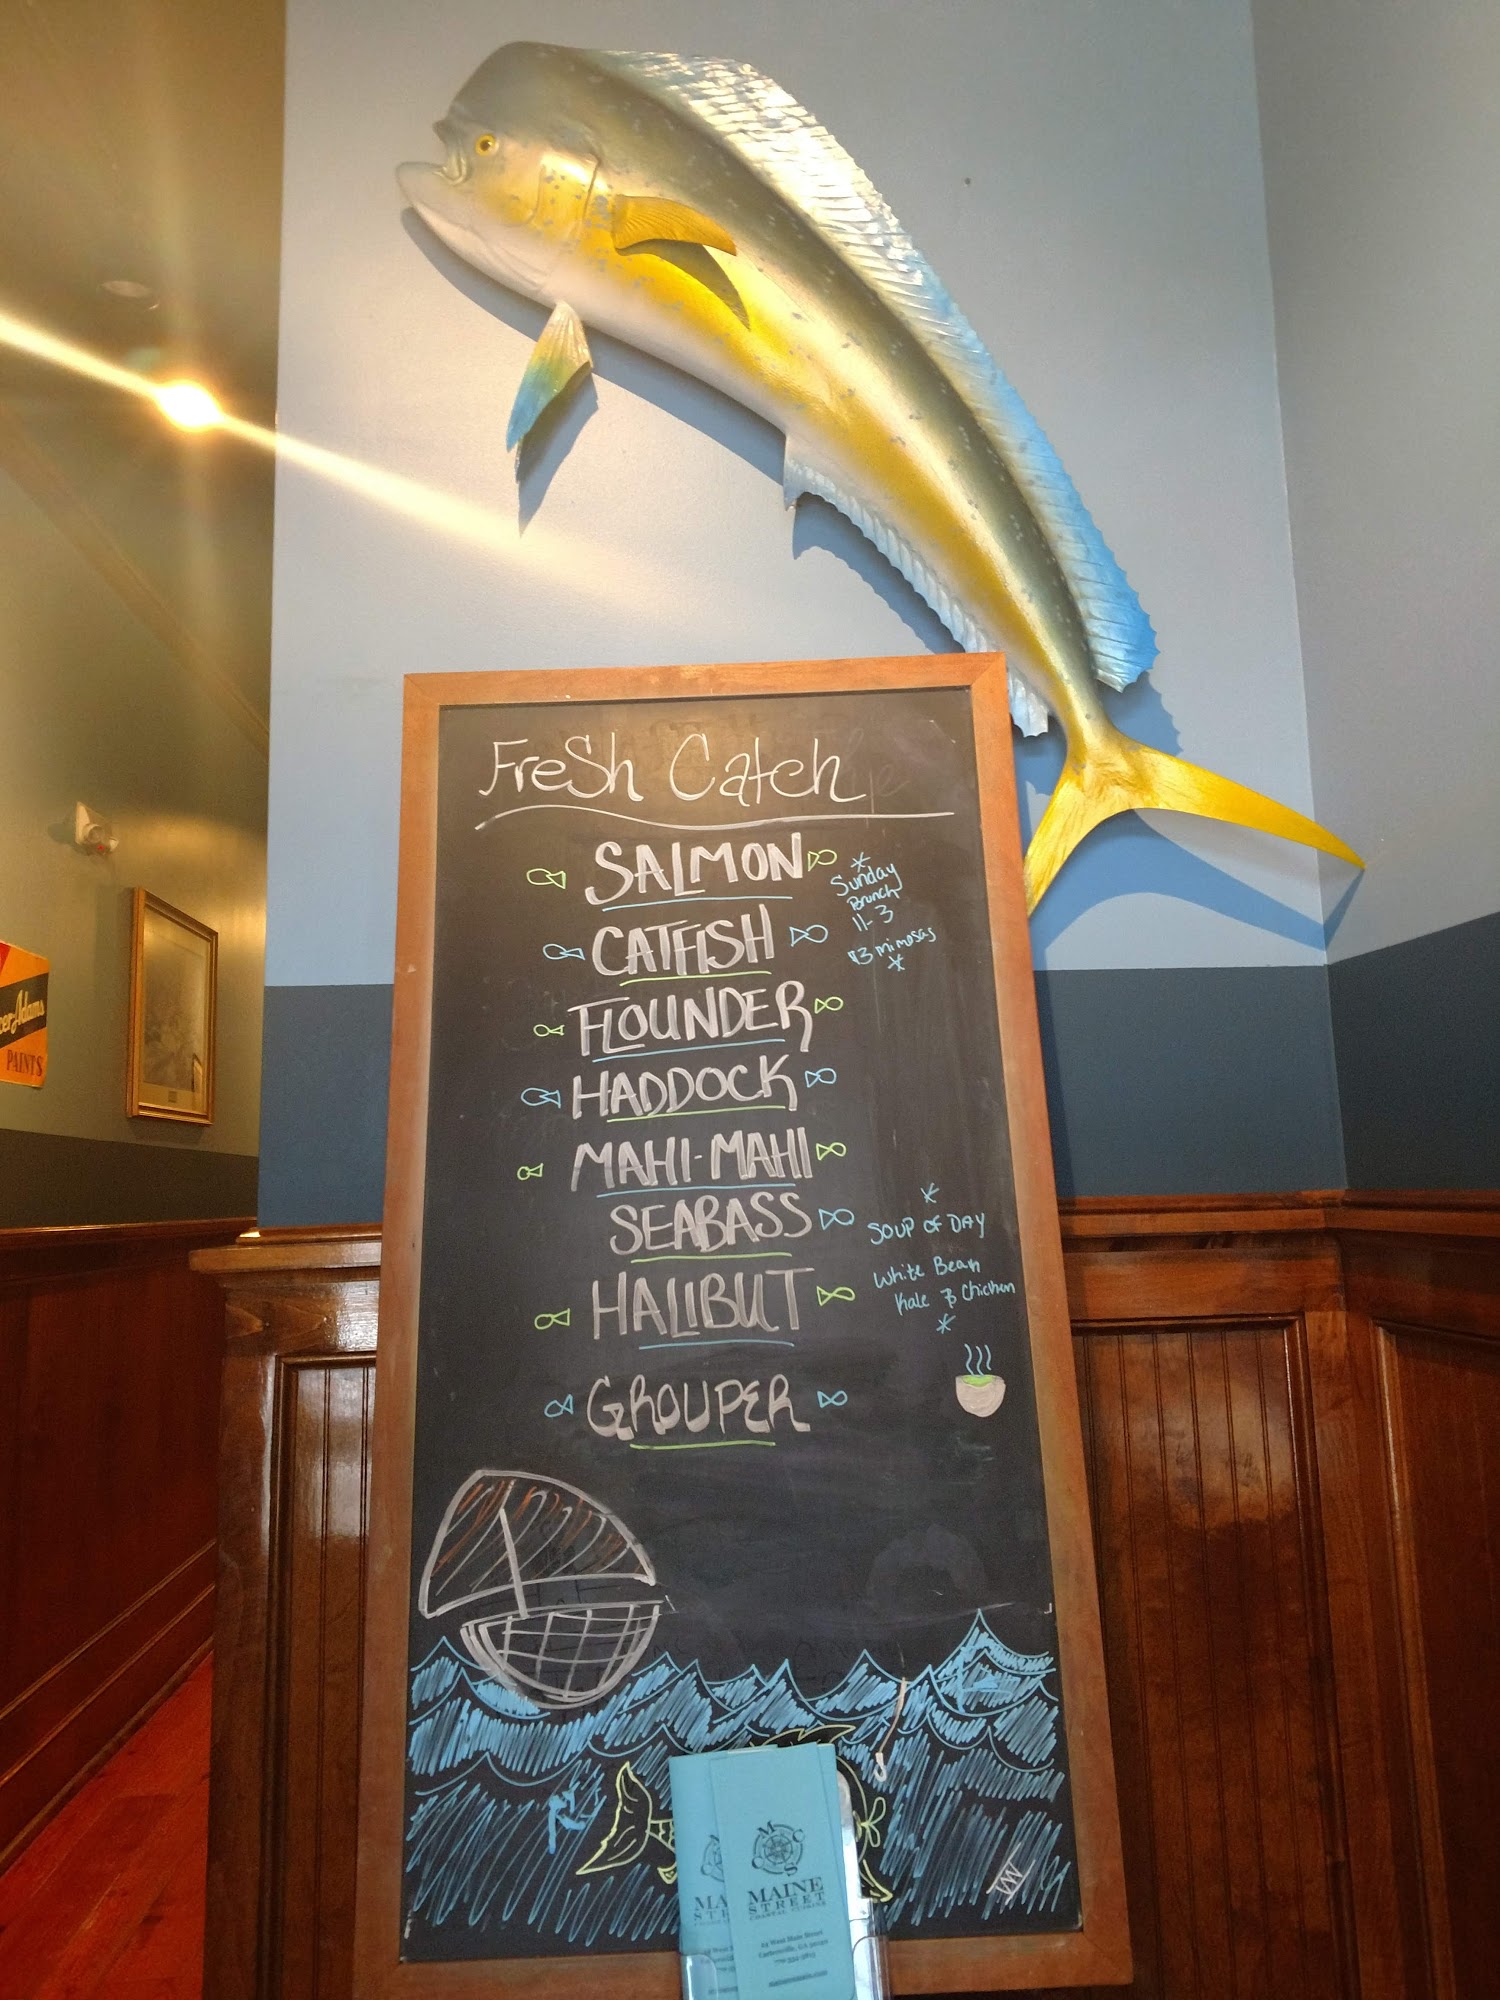 Fresh Catch
SALMON
CATFISH
FLOUNDER
HADDOCK
MAHI-MAHI
SEABASS
HALIBUT
GROUPER
*
Sunday
Brunch
11-3
$3 mimosas
*
*
SOUP OF DAY
White Bean
Kale & Chicken
*
cer-Adams
PAINTS
M
C
S
MAINE
STREET
COASTAL CUISINE
MA
STRE